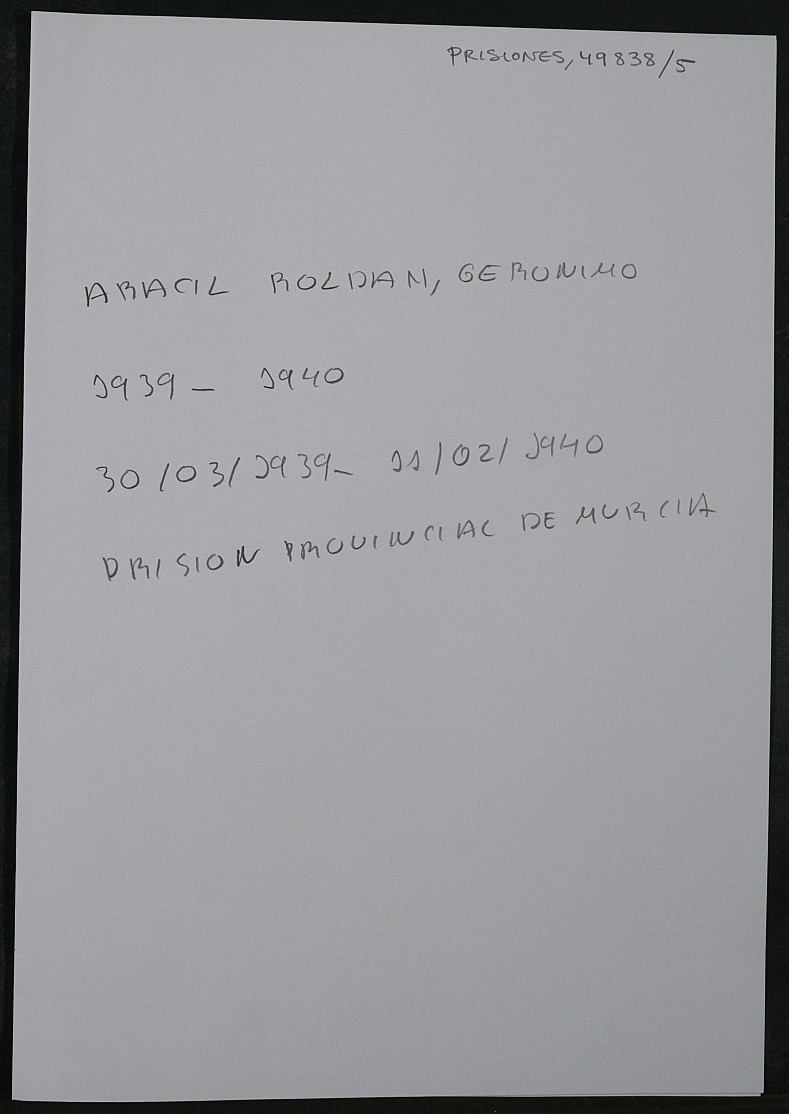 PRISIONES, 49838/5
ARACIL ROLDAN, GERONIMO
1939 - 1940
30/03/1939- 11/02/1940
PRISION PROVINCIAL DE MURCIA